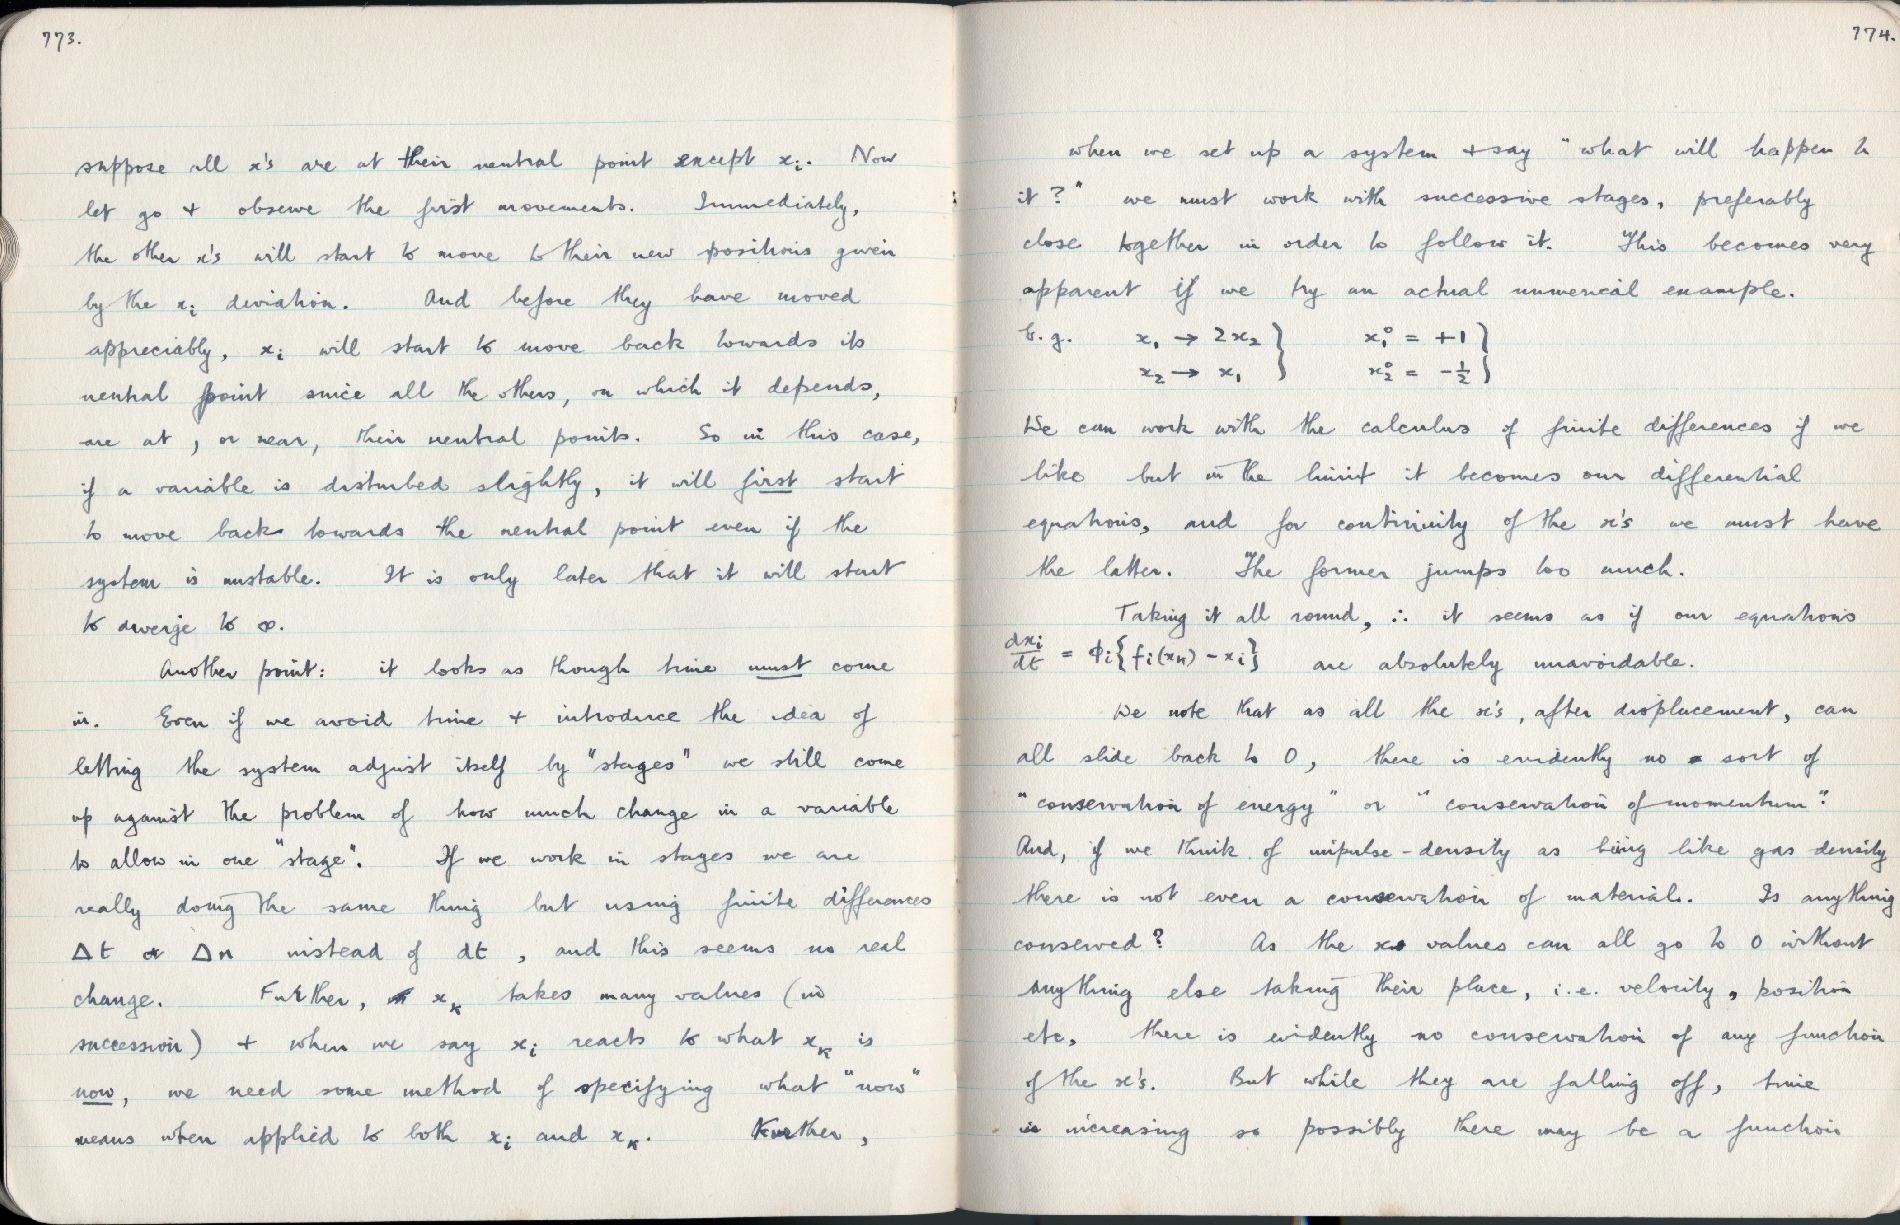 773.
suppose all x's are at their neutral point except xᵢ. Now
let go + observe the first movements. Immediately,
the other x's will start to move to their new positions given
by the xᵢ deviation. And before they have moved
appreciably, xᵢ will start to move back towards its
neutral point since all the others, on which it depends,
are at, or near, their neutral points. So in this case,
if a variable is disturbed slightly, it will first start
to move back towards the neutral point even if the
system is unstable. It is only later that it will start
to diverge to ∞.
Another point: it looks as though time must come
in. Even if we avoid time + introduce the idea of
letting the system adjust itself by "stages" we still come
up against the problem of how much change in a variable
to allow in one "stage". If we work in stages we are
really doing the same thing but using finite differences
Δt or Δn instead of dt, and this seems no real
change. Further, xₖ takes many values (in
succession) + when we say xᵢ reacts to what xₖ is
now, we need some method of specifying what "now"
means when applied to both xᵢ and xₖ. Further,
774.
when we set up a system + say "what will happen to
it?" we must work with successive stages, preferably
close together in order to follow it. This becomes very
apparent if we try an actual numerical example.
E.g. x₁ → 2x₂ } x₁⁰ = +1 }
x₂ → x₁ } x₂⁰ = -½ }
We can work with the calculus of finite differences if we
like but in the limit it becomes our differential
equations, and for continuity of the x's we must have
the latter. The former jumps too much.
Taking it all round, ∴ it seems as if our equations
dxᵢ/dt = ϕᵢ{fᵢ(xₙ) - xᵢ} are absolutely unavoidable.
We note that as all the x's, after displacement, can
all slide back to 0, there is evidently no sort of
"conservation of energy" or "conservation of momentum".
And, if we think of impulse-density as being like gas density
there is not even a conservation of material. Is anything
conserved? As the x values can all go to 0 without
anything else taking their place, i.e. velocity, position
etc, there is evidently no conservation of any function
of the x's. But while they are falling off, time
is increasing so possibly there may be a function